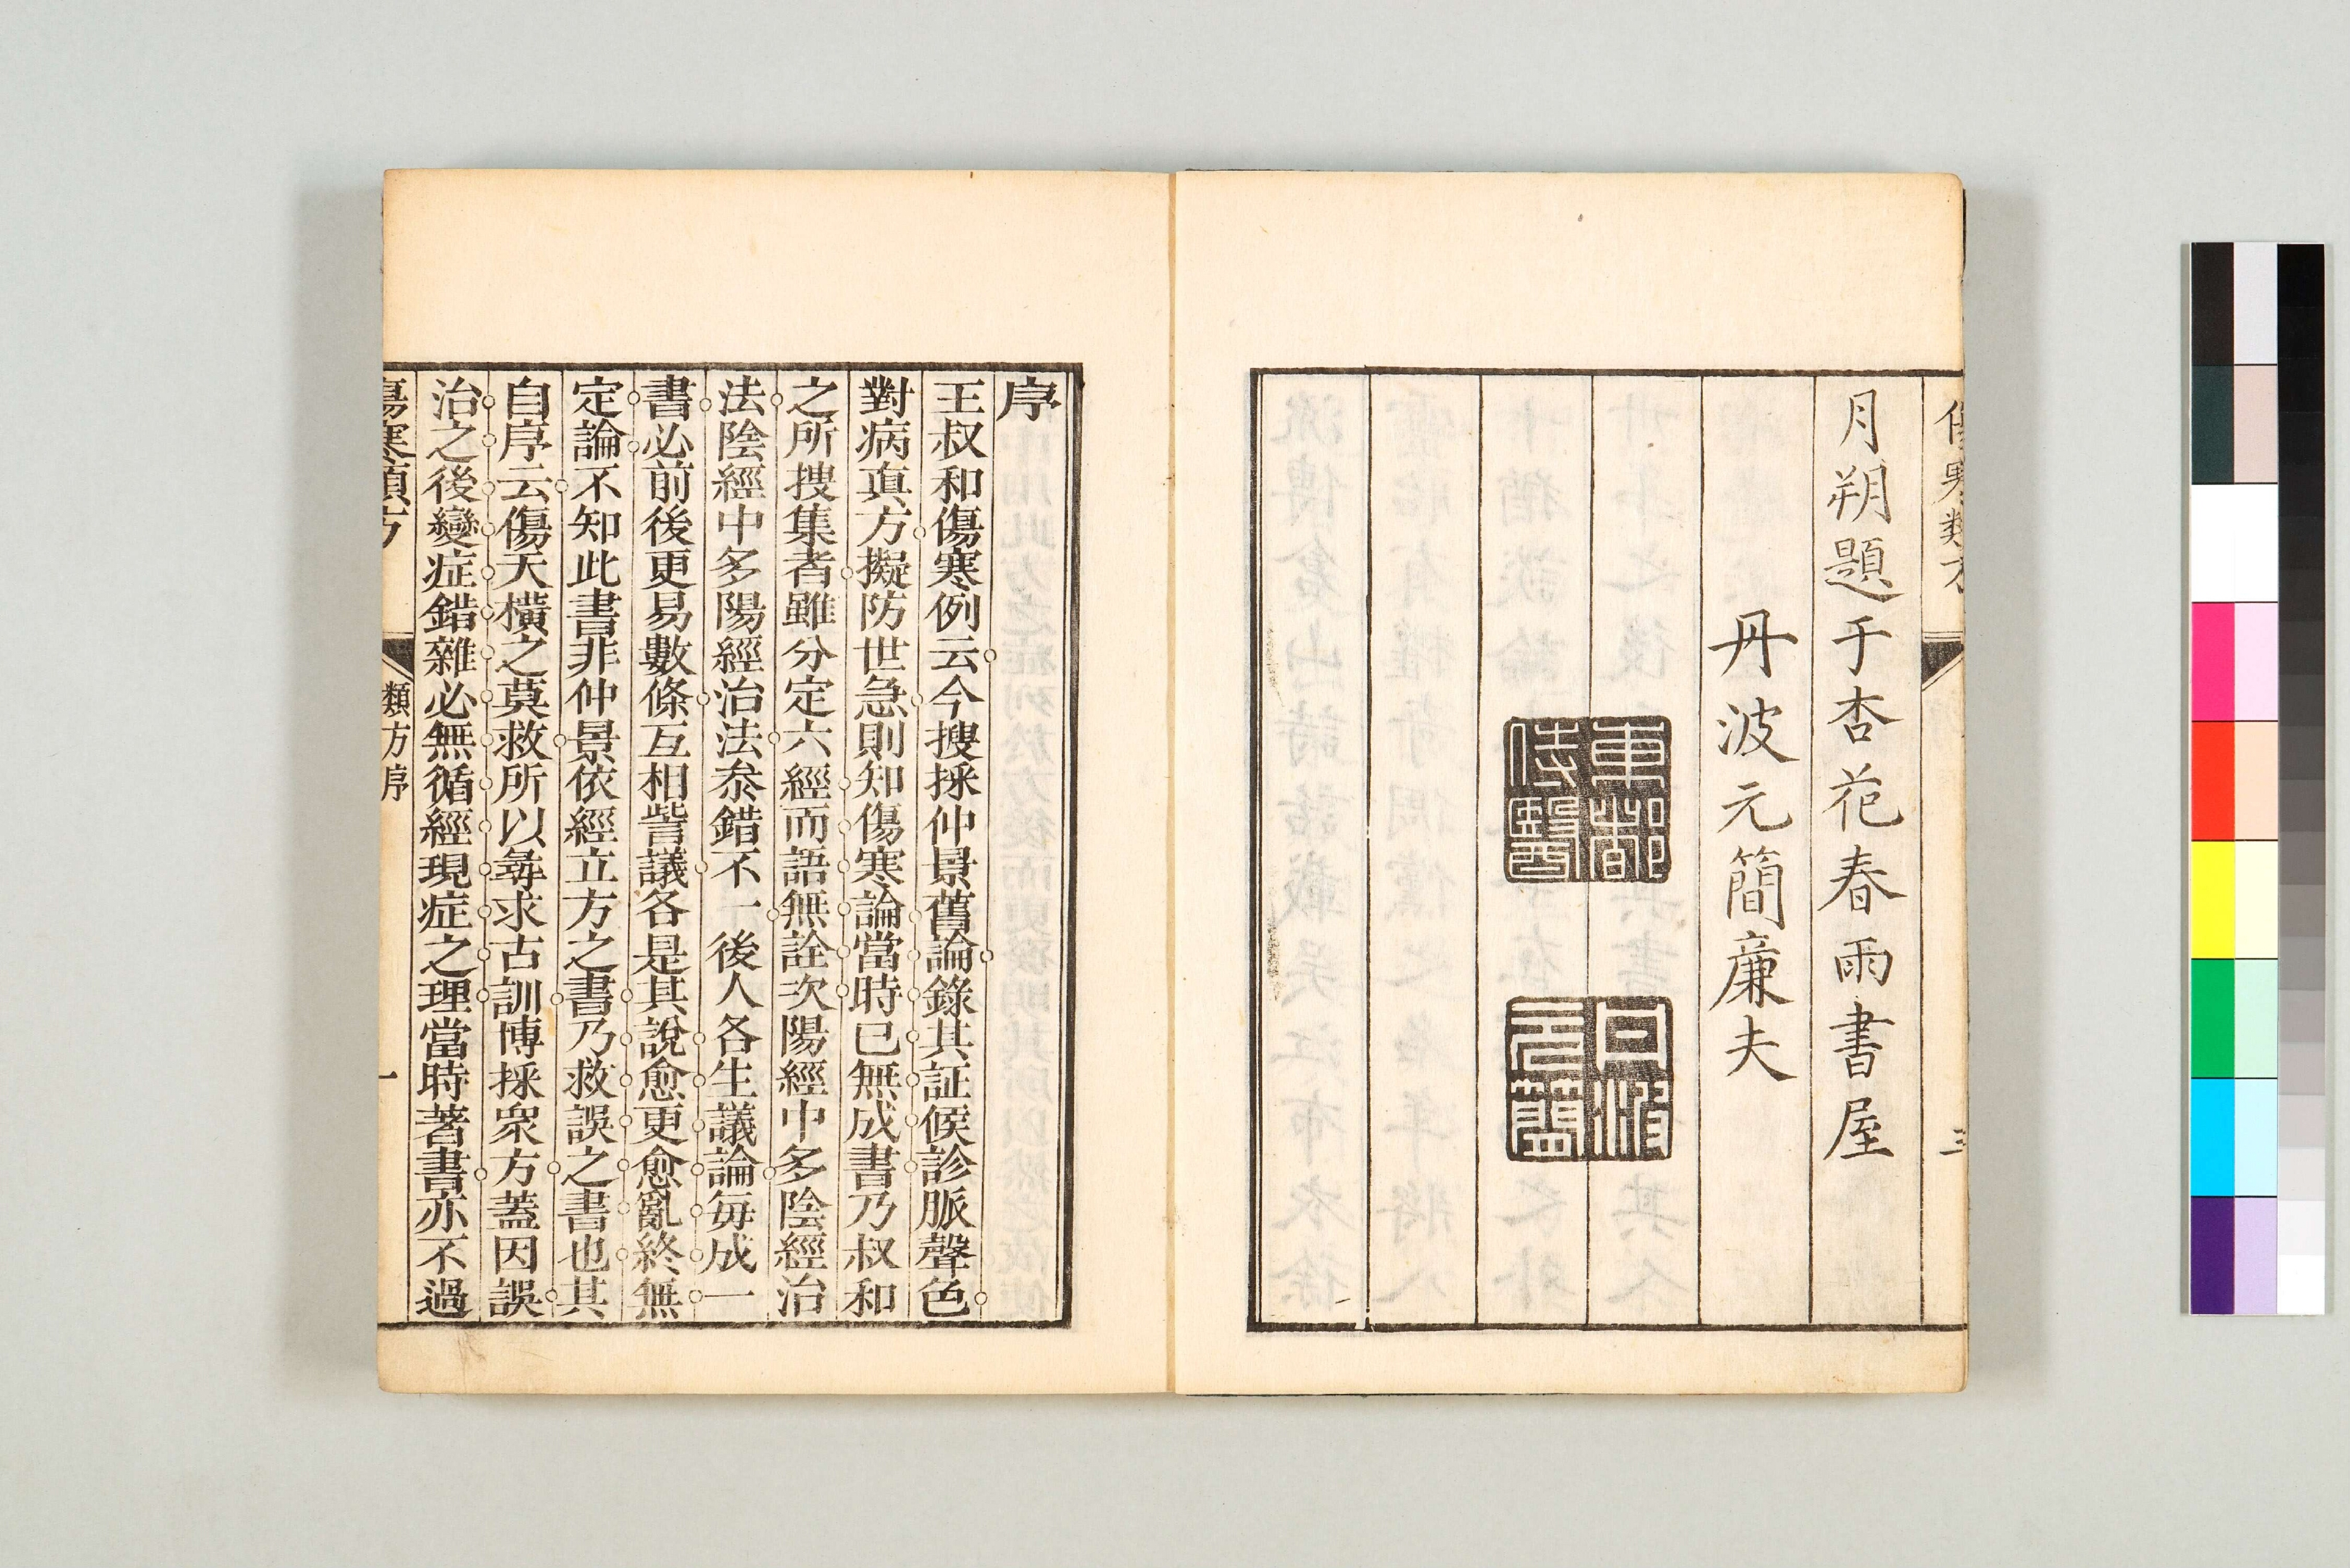 傷寒類方
三
月朔題于杏花春雨書屋
丹波元簡廉夫
東都
侍醫
元簡
序
王叔和傷寒例云今搜採仲景舊論錄其証候診脈聲色
對病真方擬防世急則知傷寒論當時已無成書乃叔和
之所搜集者雖分定六經而語無詮次陽經中多陰經治
法陰經中多陽經治法叅錯不一後人各生議論每成一
書必前後更易數條互相訾議各是其說愈更愈亂終無
定論不知此書非仲景依經立方之書乃救誤之書也其
自序云傷夭橫之莫救所以尋求古訓博採衆方蓋因誤
治之後變症錯雜必無循經現症之理當時著書亦不過
傷寒類方
類方序
一